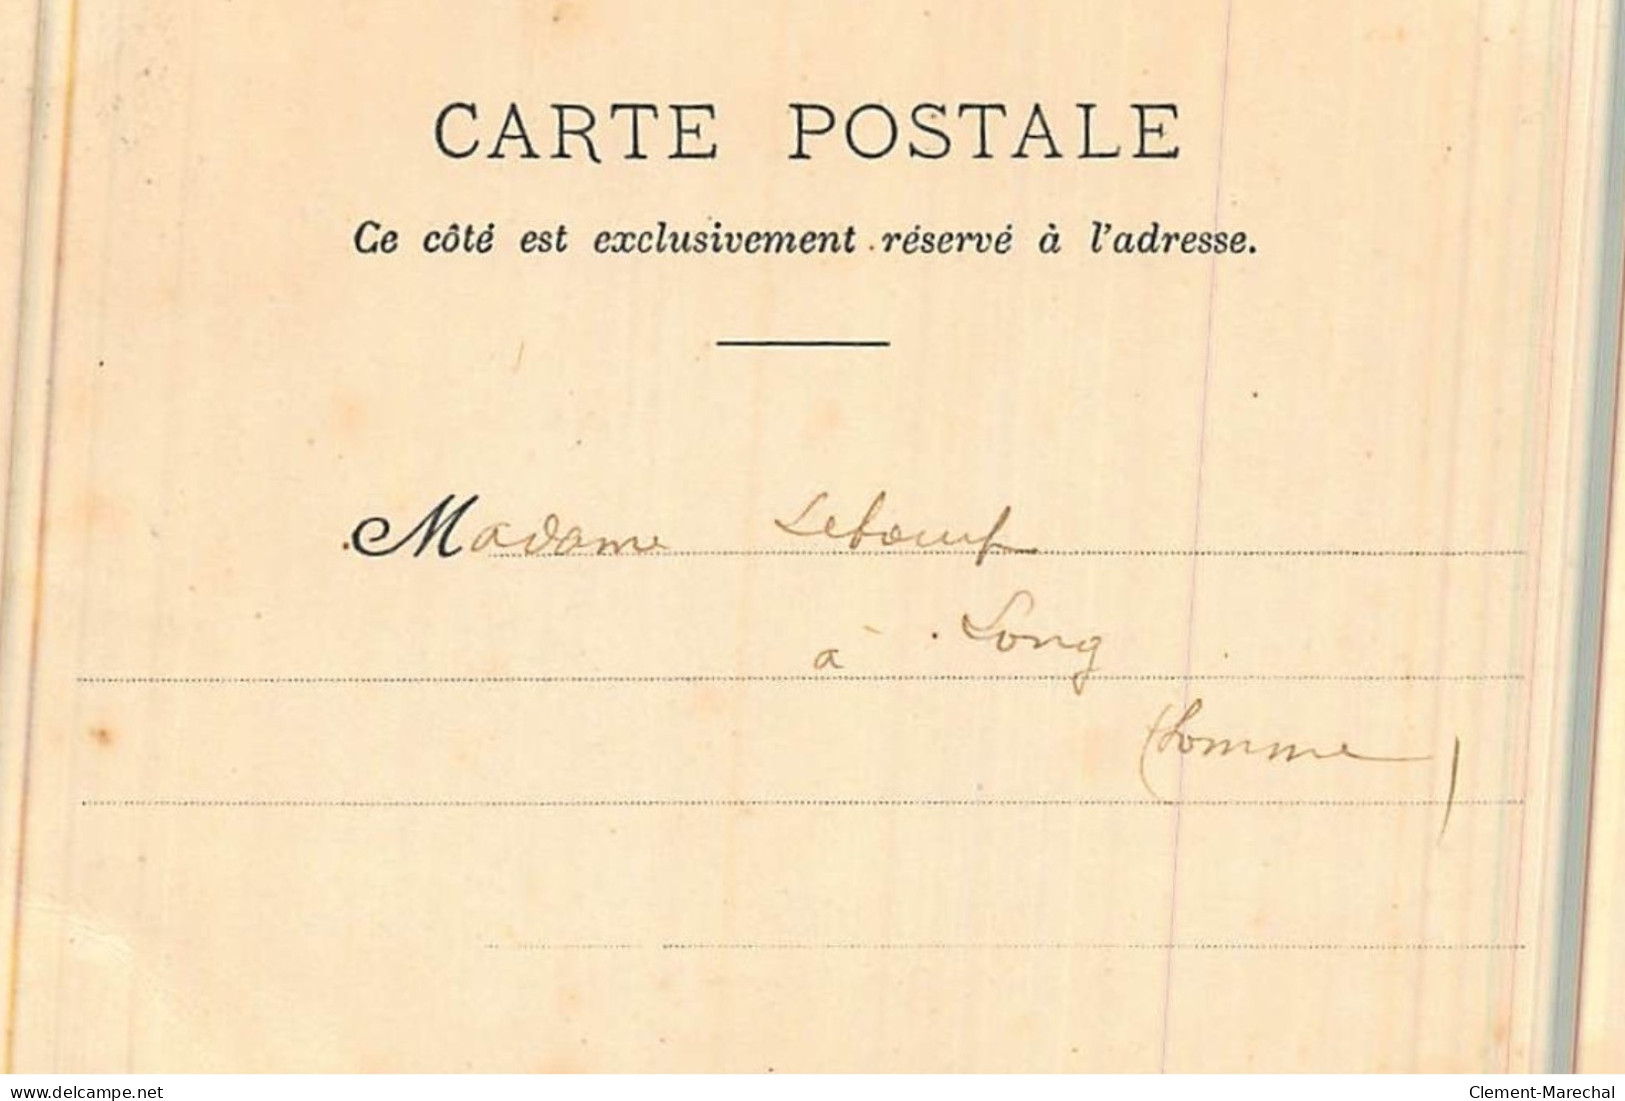 CARTE POSTALE
Ce côté est exclusivement réservé à l'adresse.
Madame Leboeuf
à Long
(Somme)
delcampe.net
Clement-Marechal